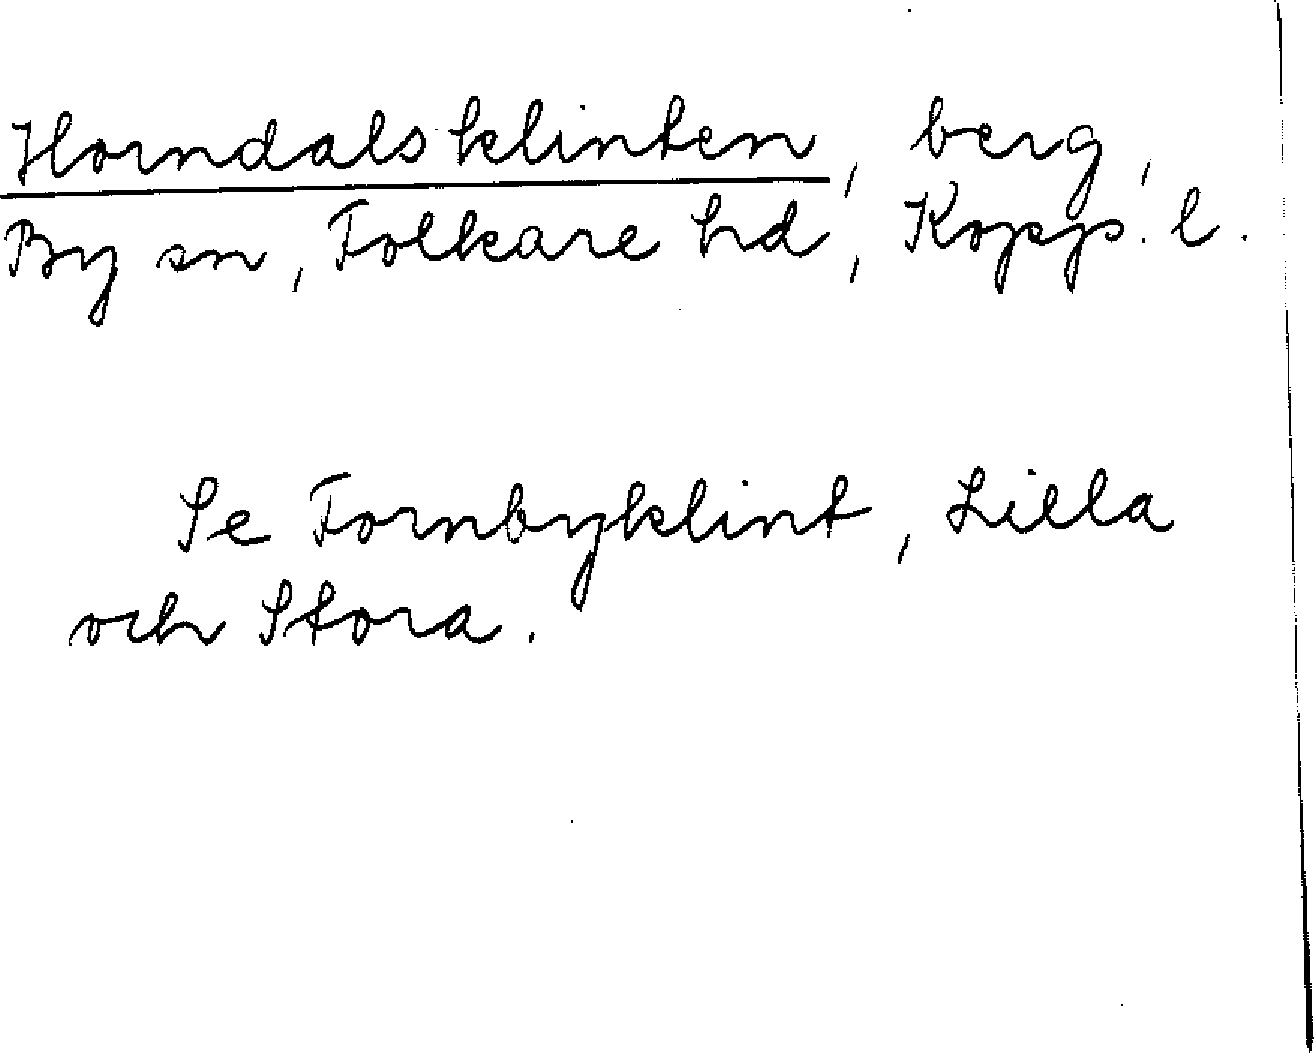 Horndalsklinten, berg,
By sn, Folkare hd, Kopp. l.
Se Fornbyklint, Lilla
och Stora.